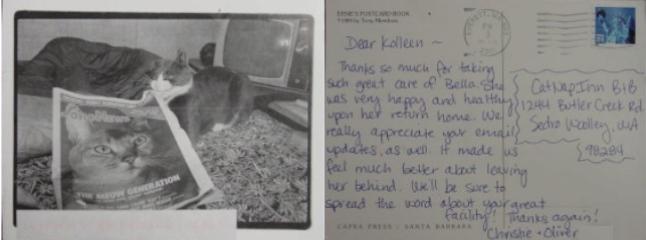 THE MEOW GENERATION
ERNIE'S POSTCARD BOOK
Dear Kolleen ~
Thanks so much for taking
such great care of Bella. She
was very happy and healthy
upon her return home. We
really appreciate your email
updates, as well. It made us
feel much better about leaving
her behind. We'll be sure to
spread the word about your great
facility! Thanks again!
Christie + Oliver
CatNap Inn B+B
1244 Butler Creek Rd.
Sedro Woolley, WA
98284
CAPRA PRESS / SANTA BARBARA